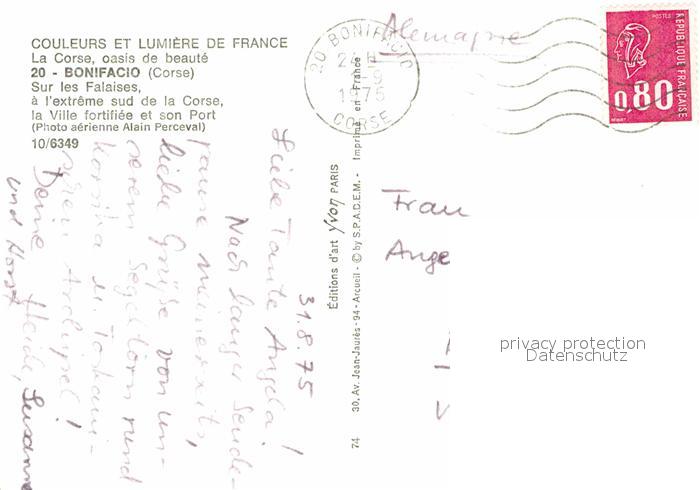 COULEURS ET LUMIÈRE DE FRANCE
La Corse, oasis de beauté
20 - BONIFACIO (Corse)
Sur les Falaises,
à l'extrême sud de la Corse,
la Ville fortifiée et son Port
(Photo aérienne Alain Perceval)
10/6349
20 BONIFACIO
1975
CORSE
Alemagne
POSTES
RÉPUBLIQUE FRANÇAISE
0,80
Editions d'art Yvon PARIS
30, Av. Jean-Jaurès - 94 - Arcueil - © by S.P.A.D.E.M. - Imprimé en France
74
31.8.75
Liebe Tante Angela!
Nach langer Sende-
pause meinerseits,
liebe Grüße von un-
serem Segeltörn rund
Korsika u. Toskani-
schen Archipel!
Deine Heide, Susanne
und Horst
Frau
Ange
privacy protection
Datenschutz